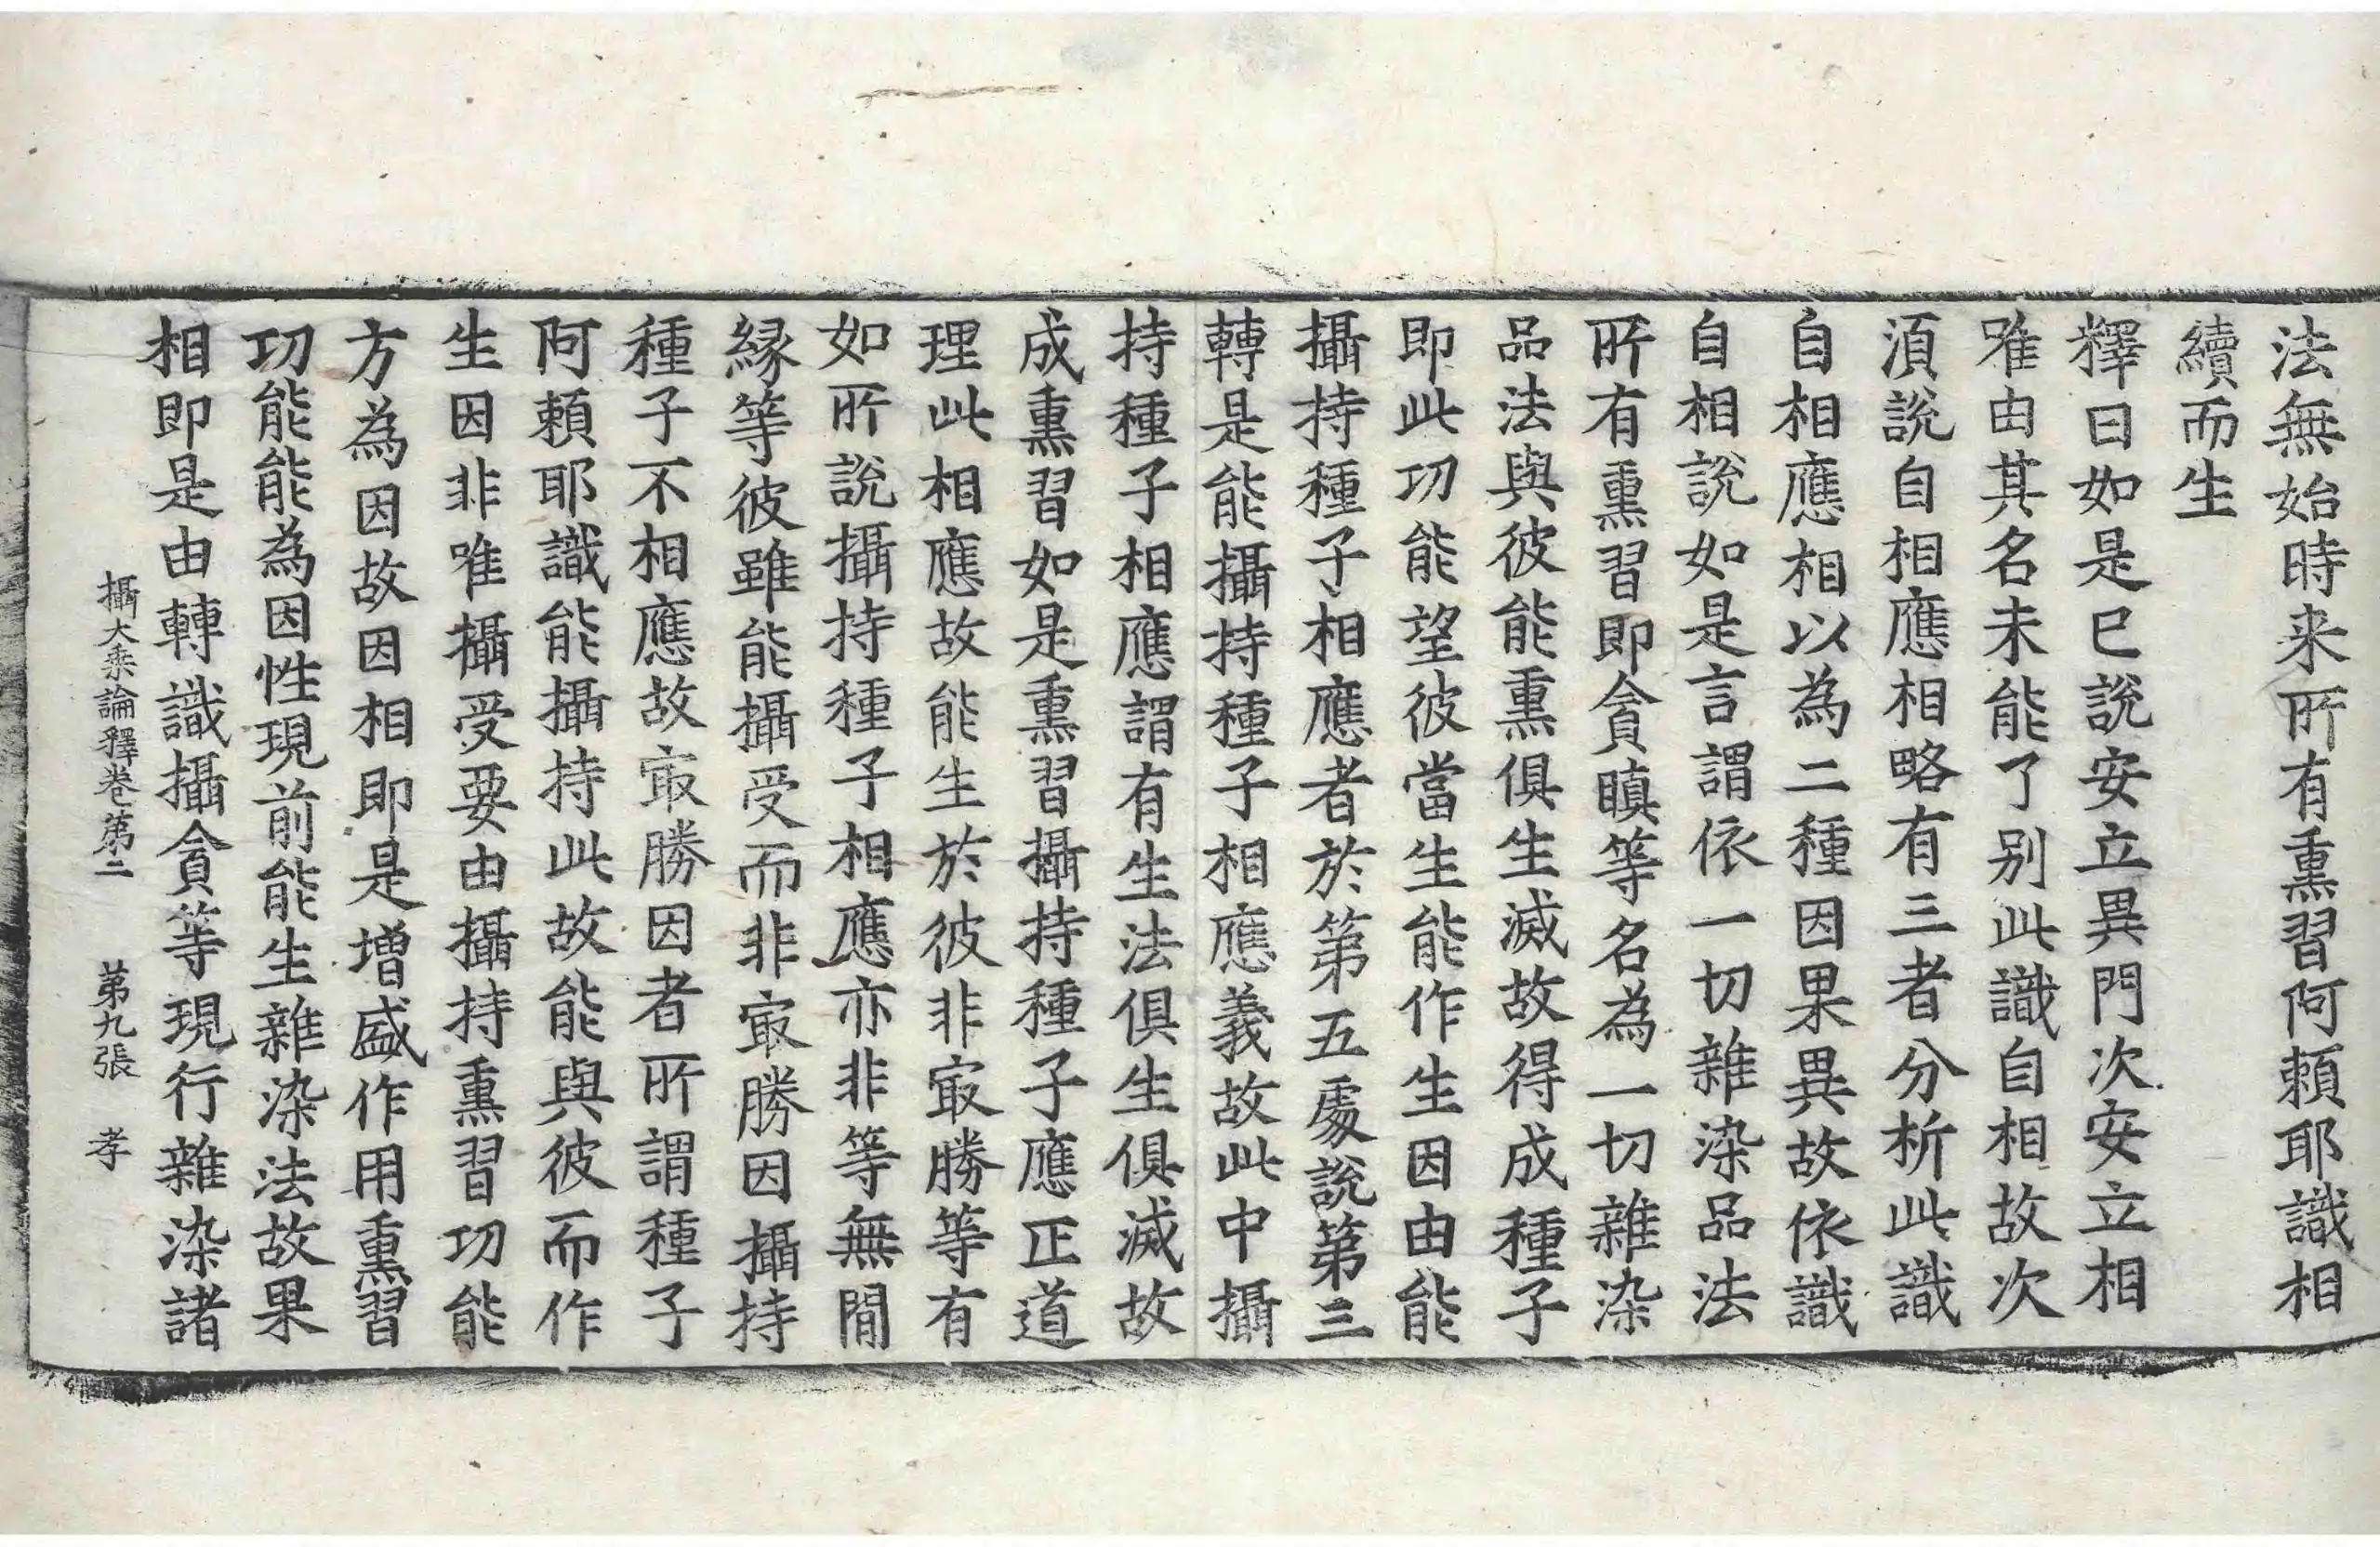 法無始時来所有熏習阿頼耶識相
續而生
釋曰如是已說安立異門次安立相
唯由其名未能了别此識自相故次
湏說自相應相略有三者分析此識
自相應相以為二種因果異故依識
自相說如是言謂依一切雜染品法
所有熏習即貪瞋等名為一切雜染
品法與彼能熏俱生滅故得成種子
即此功能望彼當生能作生因由能
攝持種子相應者於第五處說第三
轉是能攝持種子相應義故此中攝
持種子相應謂有生法俱生俱滅故
成熏習如是熏習攝持種子應正道
理此相應故能生於彼非㝡勝等有
如所說攝持種子相應亦非等無閒
縁等彼雖能攝受而非㝡勝因攝持
種子不相應故㝡勝因者所謂種子
阿頼耶識能攝持此故能與彼而作
生因非唯攝受要由攝持熏習功能
方為因故因相即是增盛作用熏習
功能能為因性現前能生雜染法故果
相即是由轉識攝貪等現行雜染諸
攝大乘論釋卷第二　第九張　孝